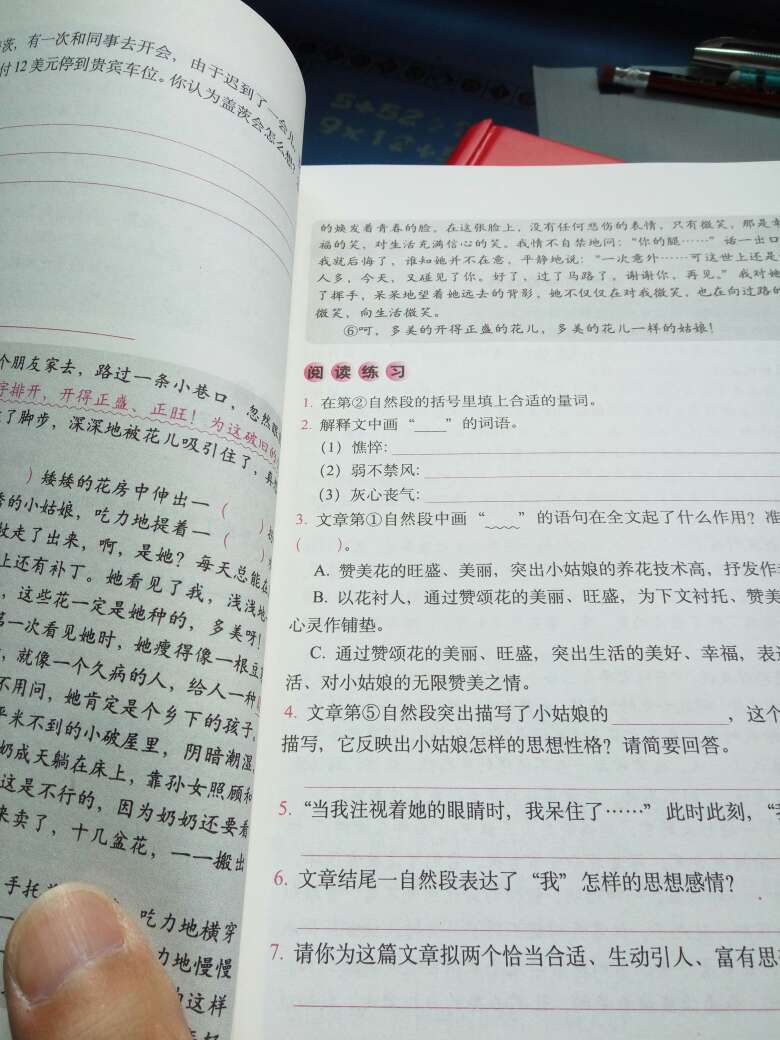 茨，有一次和同事去开会，由于迟到了一会儿
付12美元停到贵宾车位。你认为盖茨会怎么想
个朋友家去，路过一条小巷口，忽然眼
排开，开得正盛、正旺！为这破旧的
了脚步，深深地被花儿吸引住了，真
）矮矮的花房中伸出一（ ）
的小姑娘，吃力地提着一（ ）
走了出来，啊，是她？每天总能在
上还有补丁。她看见了我，浅浅地
，这些花一定是她种的，多美呀！
第一次看见她时，她瘦得像一根豆
，就像一个久病的人，给人一种
不用问，她肯定是个乡下的孩子。
平米不到的小破屋里，阴暗潮湿
奶成天躺在床上，靠孙女照顾和
这是不行的，因为奶奶还要看
来卖了，十几盆花，一一搬出
手托
吃力地横穿
力地慢慢
这样
的焕发着青春的脸。在这张脸上，没有任何悲伤的表情，只有微笑，那是幸
福的笑，对生活充满信心的笑。我情不自禁地问：“你的腿……”话一出口
我就后悔了，谁知她并不在意，平静地说：“一次意外……可这世上还是
人多，今天，又碰见了你。好了，过了马路了，谢谢你，再见。”我对她
了挥手，呆呆地望着她远去的背影，她不仅仅在对我微笑，也在向过路的
微笑，向生活微笑。
⑥呵，多美的开得正盛的花儿，多美的花儿一样的姑娘！
阅读练习
1. 在第②自然段的括号里填上合适的量词。
2. 解释文中画“____”的词语。
（1）憔悴：
（2）弱不禁风：
（3）灰心丧气：
3. 文章第①自然段中画“﹏﹏”的语句在全文起了什么作用？准
（ ）。
A. 赞美花的旺盛、美丽，突出小姑娘的养花技术高，抒发作
B. 以花衬人，通过赞颂花的美丽、旺盛，为下文衬托、赞美
心灵作铺垫。
C. 通过赞颂花的美丽、旺盛，突出生活的美好、幸福，表
活、对小姑娘的无限赞美之情。
4. 文章第⑤自然段突出描写了小姑娘的__________，这个
描写，它反映出小姑娘怎样的思想性格？请简要回答。
5. “当我注视着她的眼睛时，我呆住了……”此时此刻，“我
6. 文章结尾一自然段表达了“我”怎样的思想感情？
7. 请你为这篇文章拟两个恰当合适、生动引人、富有思